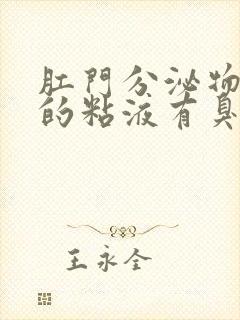 肛門分泌物
的粘液有臭
王永全